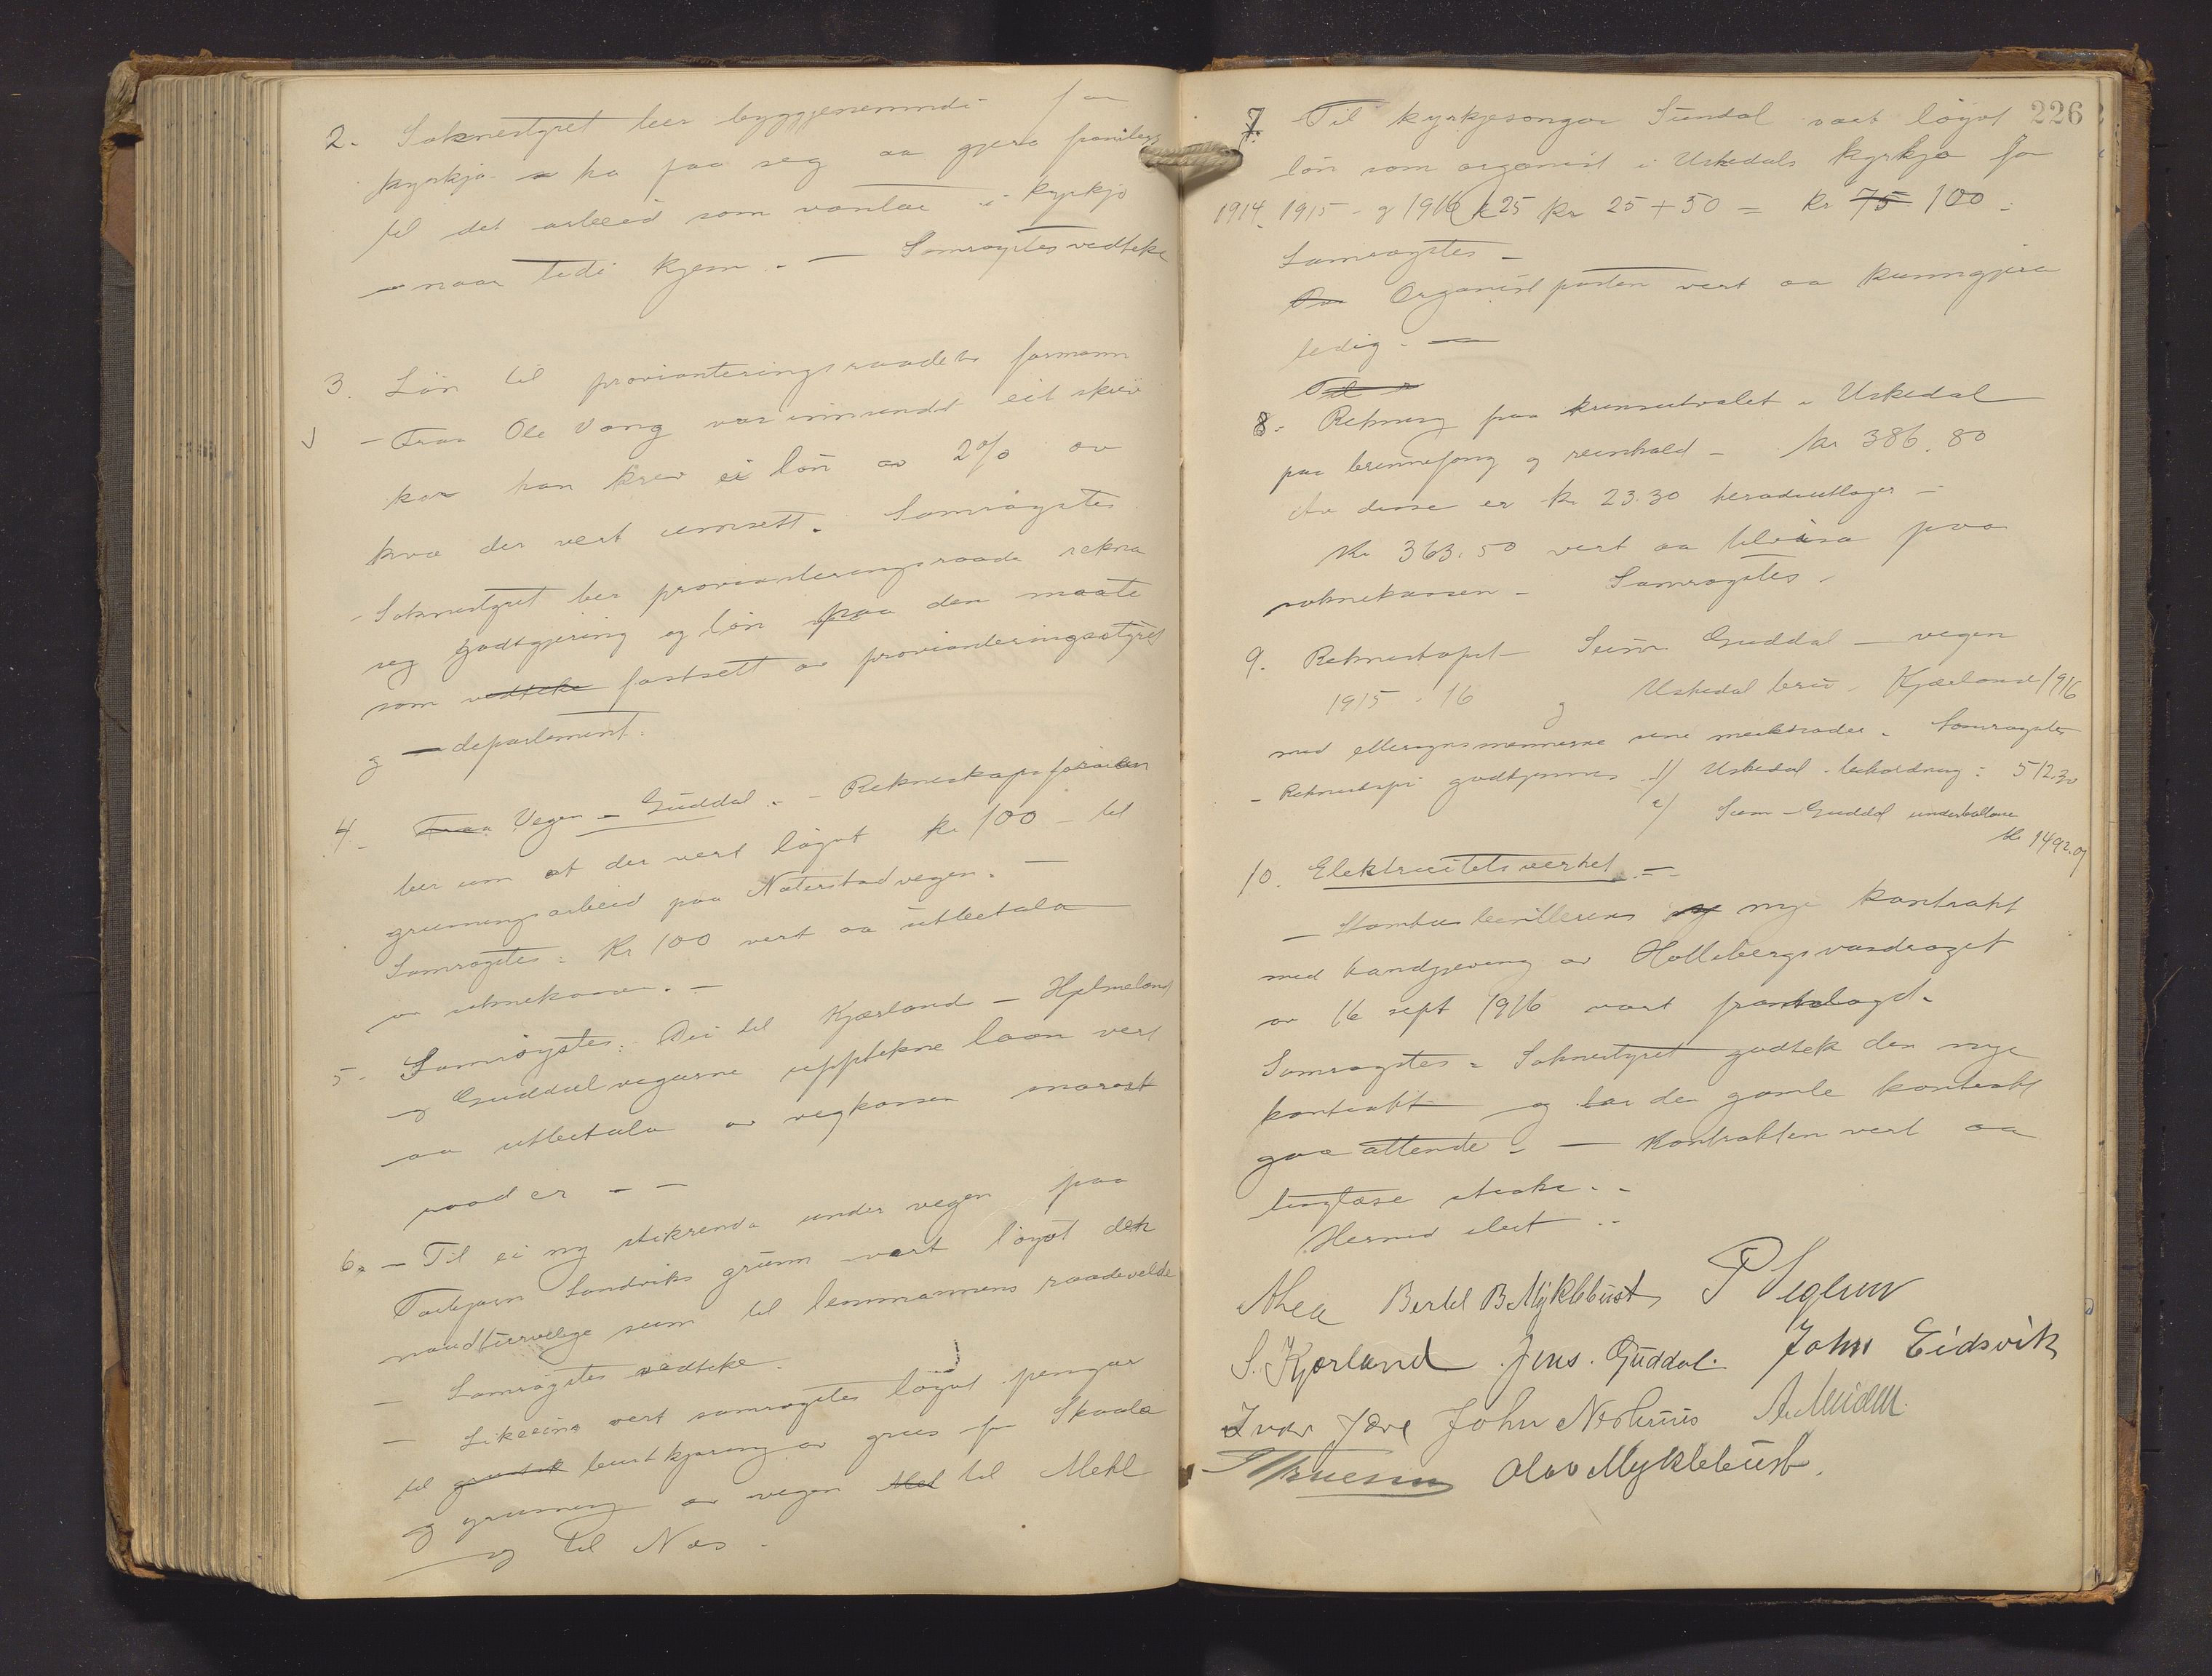 2. Soknestyret beer byggjenemndi for
kyrkja ha paa seg aa gjera
til det arbeid som vantar i kyrkjo
naar tidi kjem. - Samrøystes vedteke
3. Løn til provianteringsraadets formann
- Fraa Ole Vang var innsendt eit skriv
kor han krev ei løn av 2% av
kva der vert umsett. Samrøystes
- Soknestyret ber provianteringsraade rekna
seg godtgjering og løn paa den maate
som vedteke fastsett av provianteringsstyret
og - departement.
4. Fraa Vegen - Guddal. - Rekneskapsføraren
ber um at der vert løyvt kr 100 - til
grusningsarbeid paa Naterstadvegen. -
Samrøystes: Kr 100 vert aa utbetala
av soknekassa. -
5. Samrøystes: Dei til Kjærland - Hjelmeland
og Guddalvegarne upptekne laan vert
aa utbetala av vegkassen snarast
raad er - -
6. - Til ei ny stikrenda under vegen paa
Torbjørn Sandviks grunn vert løyvt den
naudturvelige sum til lennmannens raadevelde
- Samrøystes vedteke.
- Likeeins vert samrøystes løyvt pengar
til burtkjøring av grus fra Skaala
og grusning av vegen til Mehl
og til Nes.
226
7. Til kyrkjesongar Sundal vart løyvt
løn som organist i Uskedals kyrkja for
1914. 1915 - og 1916 kr 25 kr 25 + 50 = kr 75 100 -
Samrøystes -
Organistposten vert aa kunngjera
ledig. -
Til
8. Rekning fraa krinsutvalet i Uskedal
paa brennefang og reinhald - kr 386.80
Av desse er kr 23.30 heradsutlagor -
Kr 363.50 vert aa tilvisa paa
soknekassen - Samrøystes -
9. Rekneskapet Seim Guddal - vegen
1915 - 16 og Uskedal bru - Kjærland 1916
med ettersynsmennerne sine merknader. Samrøystes
- Rekneskapi godkjennes 1/ Uskedal - behaldning: 512.30
2/ Seim - Guddal underballanse
kr 1492.07
10. Elektricitetsverket. -
- nye kontrakt
med handgjeving av Hollebergsvasdraget
av 16 sept 1916 vart framlagd.
Samrøystes - Soknestyret godtek den nye
kontrakt og lar den gamle kontrakt
gaa attende. - Kontrakten vert aa
tinglese straks. -
Hermed slut -
Bertel B Myklebust P Seglem
S. Kjærland Jens Guddal. John Eidsvik
Ivar John Nerhuus
Olav Myklebust.